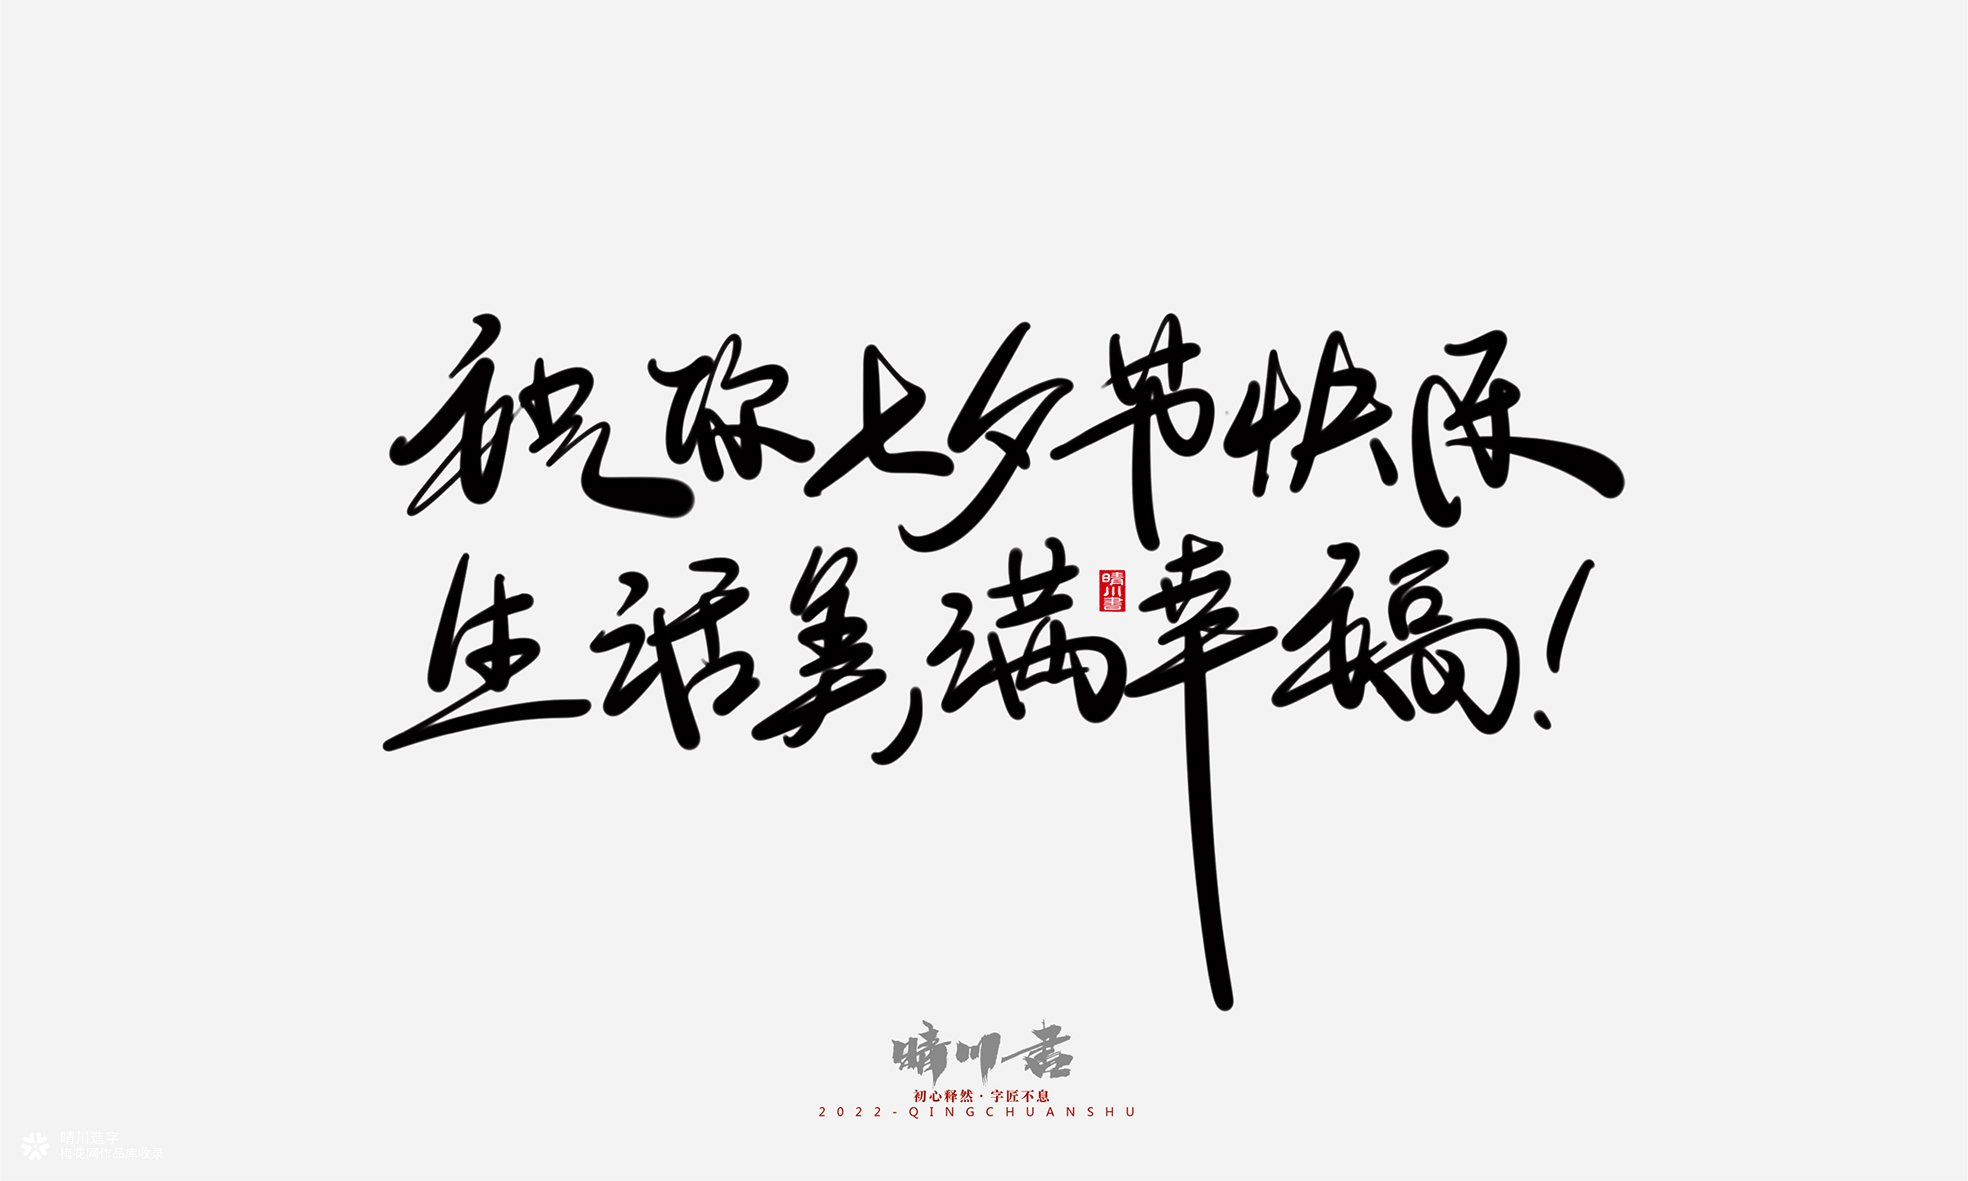 祝你七夕节快乐
生活美,满幸福!
晴川書
晴川書
初心释然·字匠不息
2022-QINGCHUANSHU
晴川造字
梅花网作品库收录